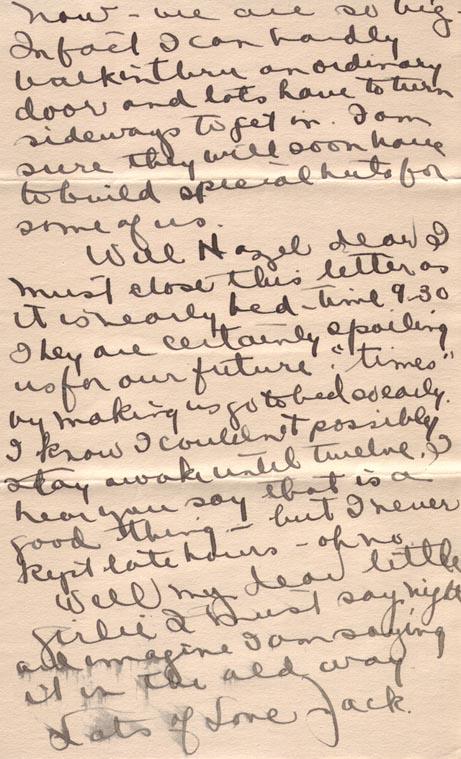 now - we are so big -
Infact I can hardly
walk in thru an ordinary
door and lots have to turn
sideways to get in. I am
sure they will soon have
to build special huts for
some of us.
Well Hazel dear I
must close this letter as
it is nearly bed-time 9-30
They are certainly spoiling
us for our future "times"
by making us go to bed so early.
I know I couldn't possibly
stay awake until twelve. I
hear you say that is a
good thing - but I never
kept late hours - oh no.
Well my dear little
girlie I must say night
and imagine I am saying
it in the old way
Lots of Love Jack.